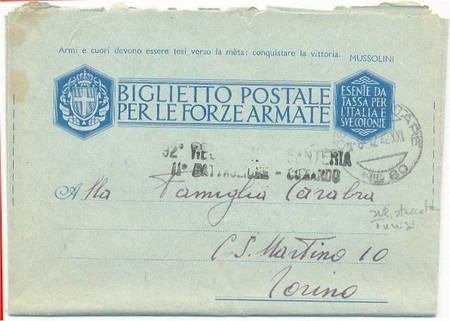 Armi e cuori devono essere tesi verso la mèta: conquistare la vittoria. MUSSOLINI
BIGLIETTO POSTALE
PER LE FORZE ARMATE
ESENTE DA
TASSA PER
L'ITALIA E
SVE COLONIE
92° FANTERIA
II° BATTAGLIONE - COMANDO
Alla Famiglia Carabra
C. S. Martino 10
Torino